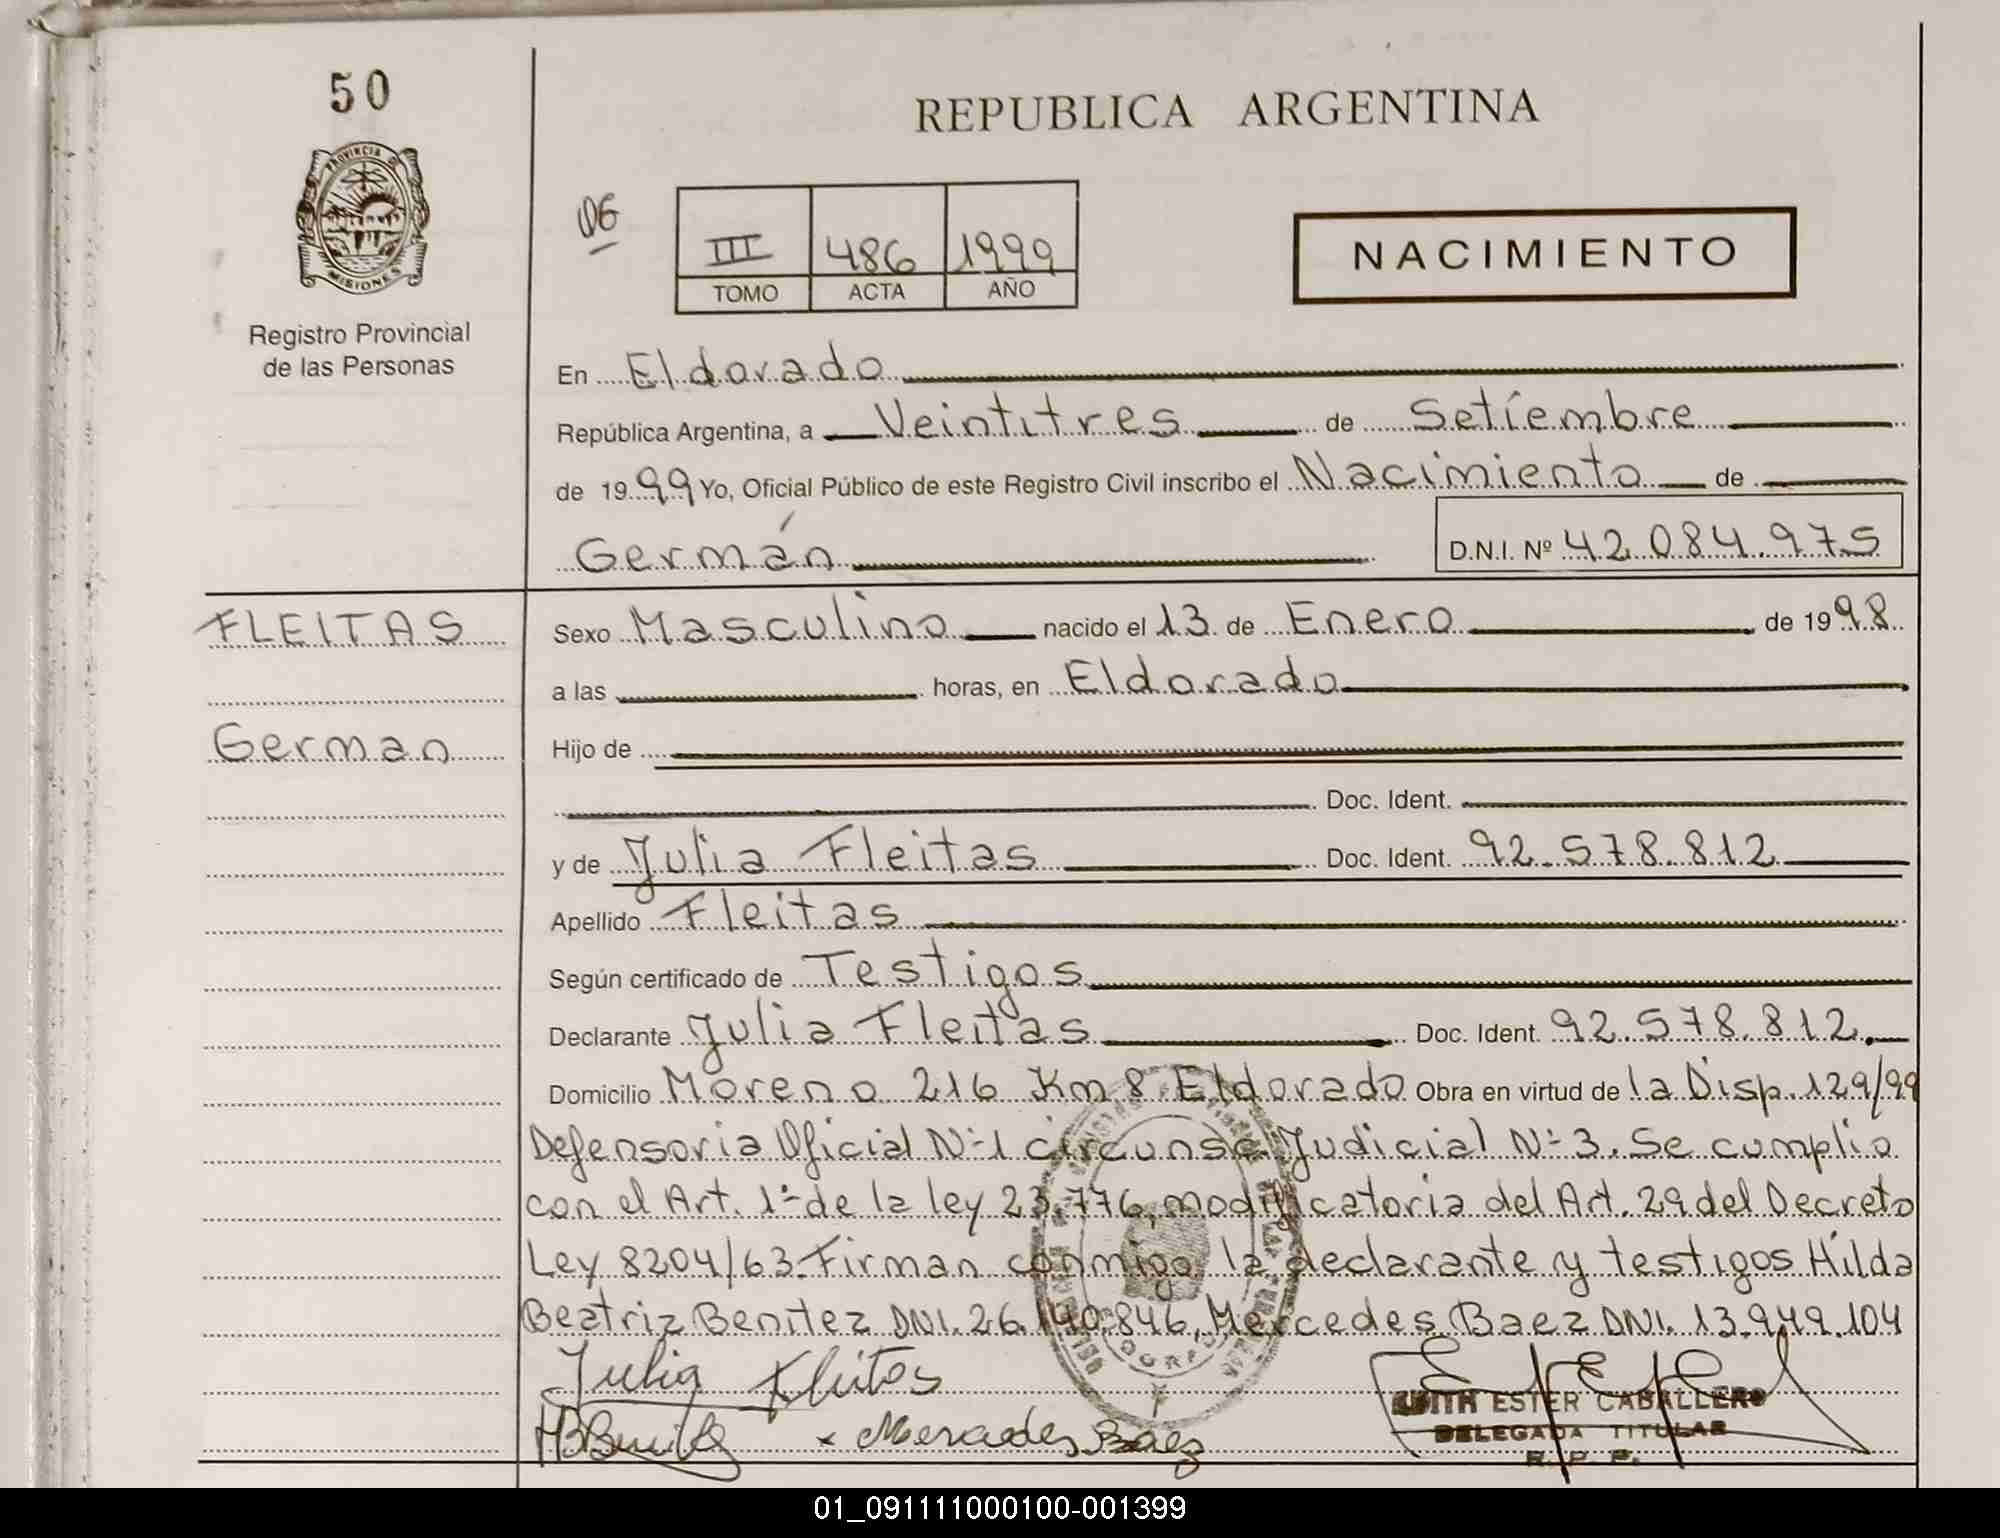 50
REPUBLICA ARGENTINA
PROVINCIA DE
MISIONES
Registro Provincial
de las Personas
06
III 486 1999
TOMO ACTA AÑO
NACIMIENTO
En Eldorado
República Argentina, a Veintitres de Setiembre
de 1999 Yo, Oficial Público de este Registro Civil inscribo el Nacimiento de
Germán D.N.I. Nº 42.084.975
FLEITAS Sexo Masculino nacido el 13 de Enero de 1998
a las horas, en Eldorado
German Hijo de
Doc. Ident.
y de Julia Fleitas Doc. Ident. 92.578.812
Apellido Fleitas
Según certificado de Testigos
Declarante Julia Fleitas Doc. Ident. 92.578.812.
Domicilio Moreno 216 Km 8 Eldorado Obra en virtud de la Disp. 129/99
Defensoria Oficial Nº1 circunsc. Judicial Nº 3. Se cumplio
con el Art. 1º de la ley 23.776, modificatoria del Art. 29 del Decreto
Ley 8204/63. Firman conmigo la declarante y testigos Hilda
Beatriz Benitez DNI. 26.190.846, Mercedes Baez DNI. 13.949.104
Julia Fleitas
HBBenitez x Mercedes Baez
EDITH ESTER CABALLERO
DELEGADA TITULAR
R. P. P.
01_091111000100-001399